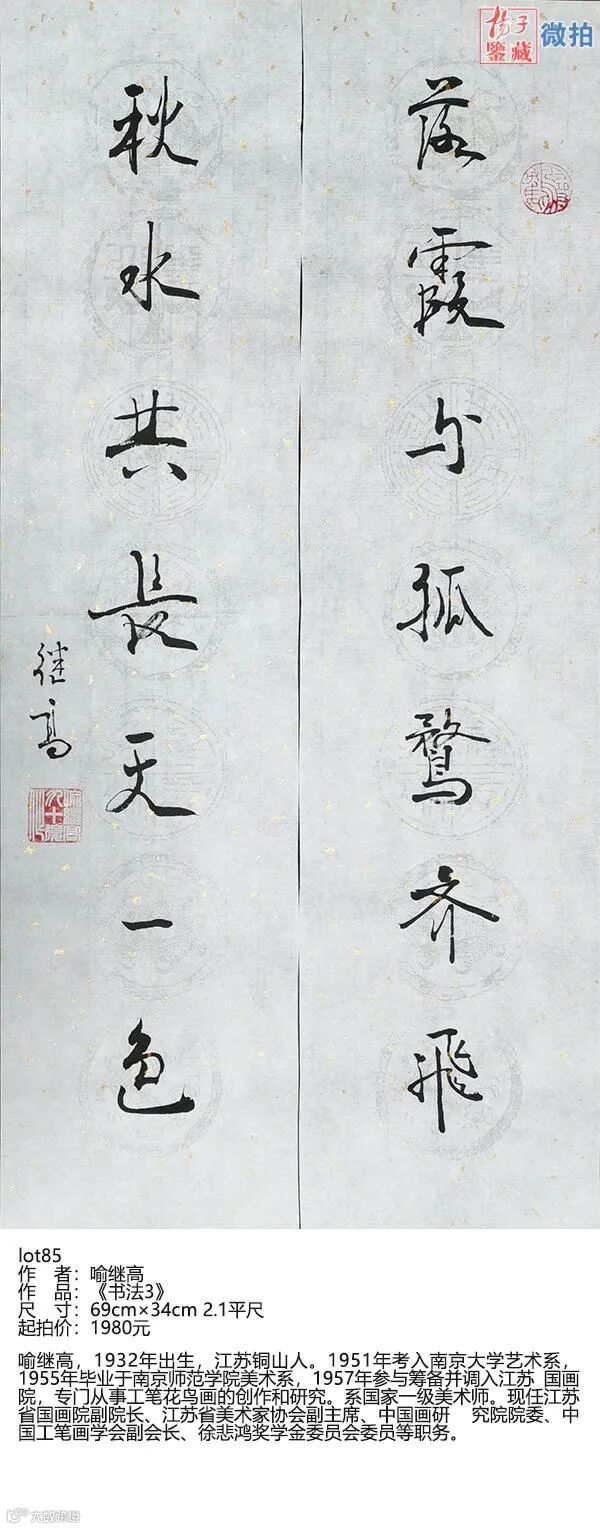 扬子
鉴藏
微拍
落霞与孤鹜齐飞
秋水共长天一色
继高
lot85
作 者：喻继高
作 品：《书法3》
尺 寸：69cm×34cm 2.1平尺
起拍价：1980元
喻继高，1932年出生，江苏铜山人。1951年考入南京大学艺术系，
1955年毕业于南京师范学院美术系，1957年参与筹备并调入江苏 国画
院，专门从事工笔花鸟画的创作和研究。系国家一级美术师。现任江苏
省国画院副院长、江苏省美术家协会副主席、中国画研 究院院委、中
国工笔画学会副会长、徐悲鸿奖学金委员会委员等职务。
大威跨境